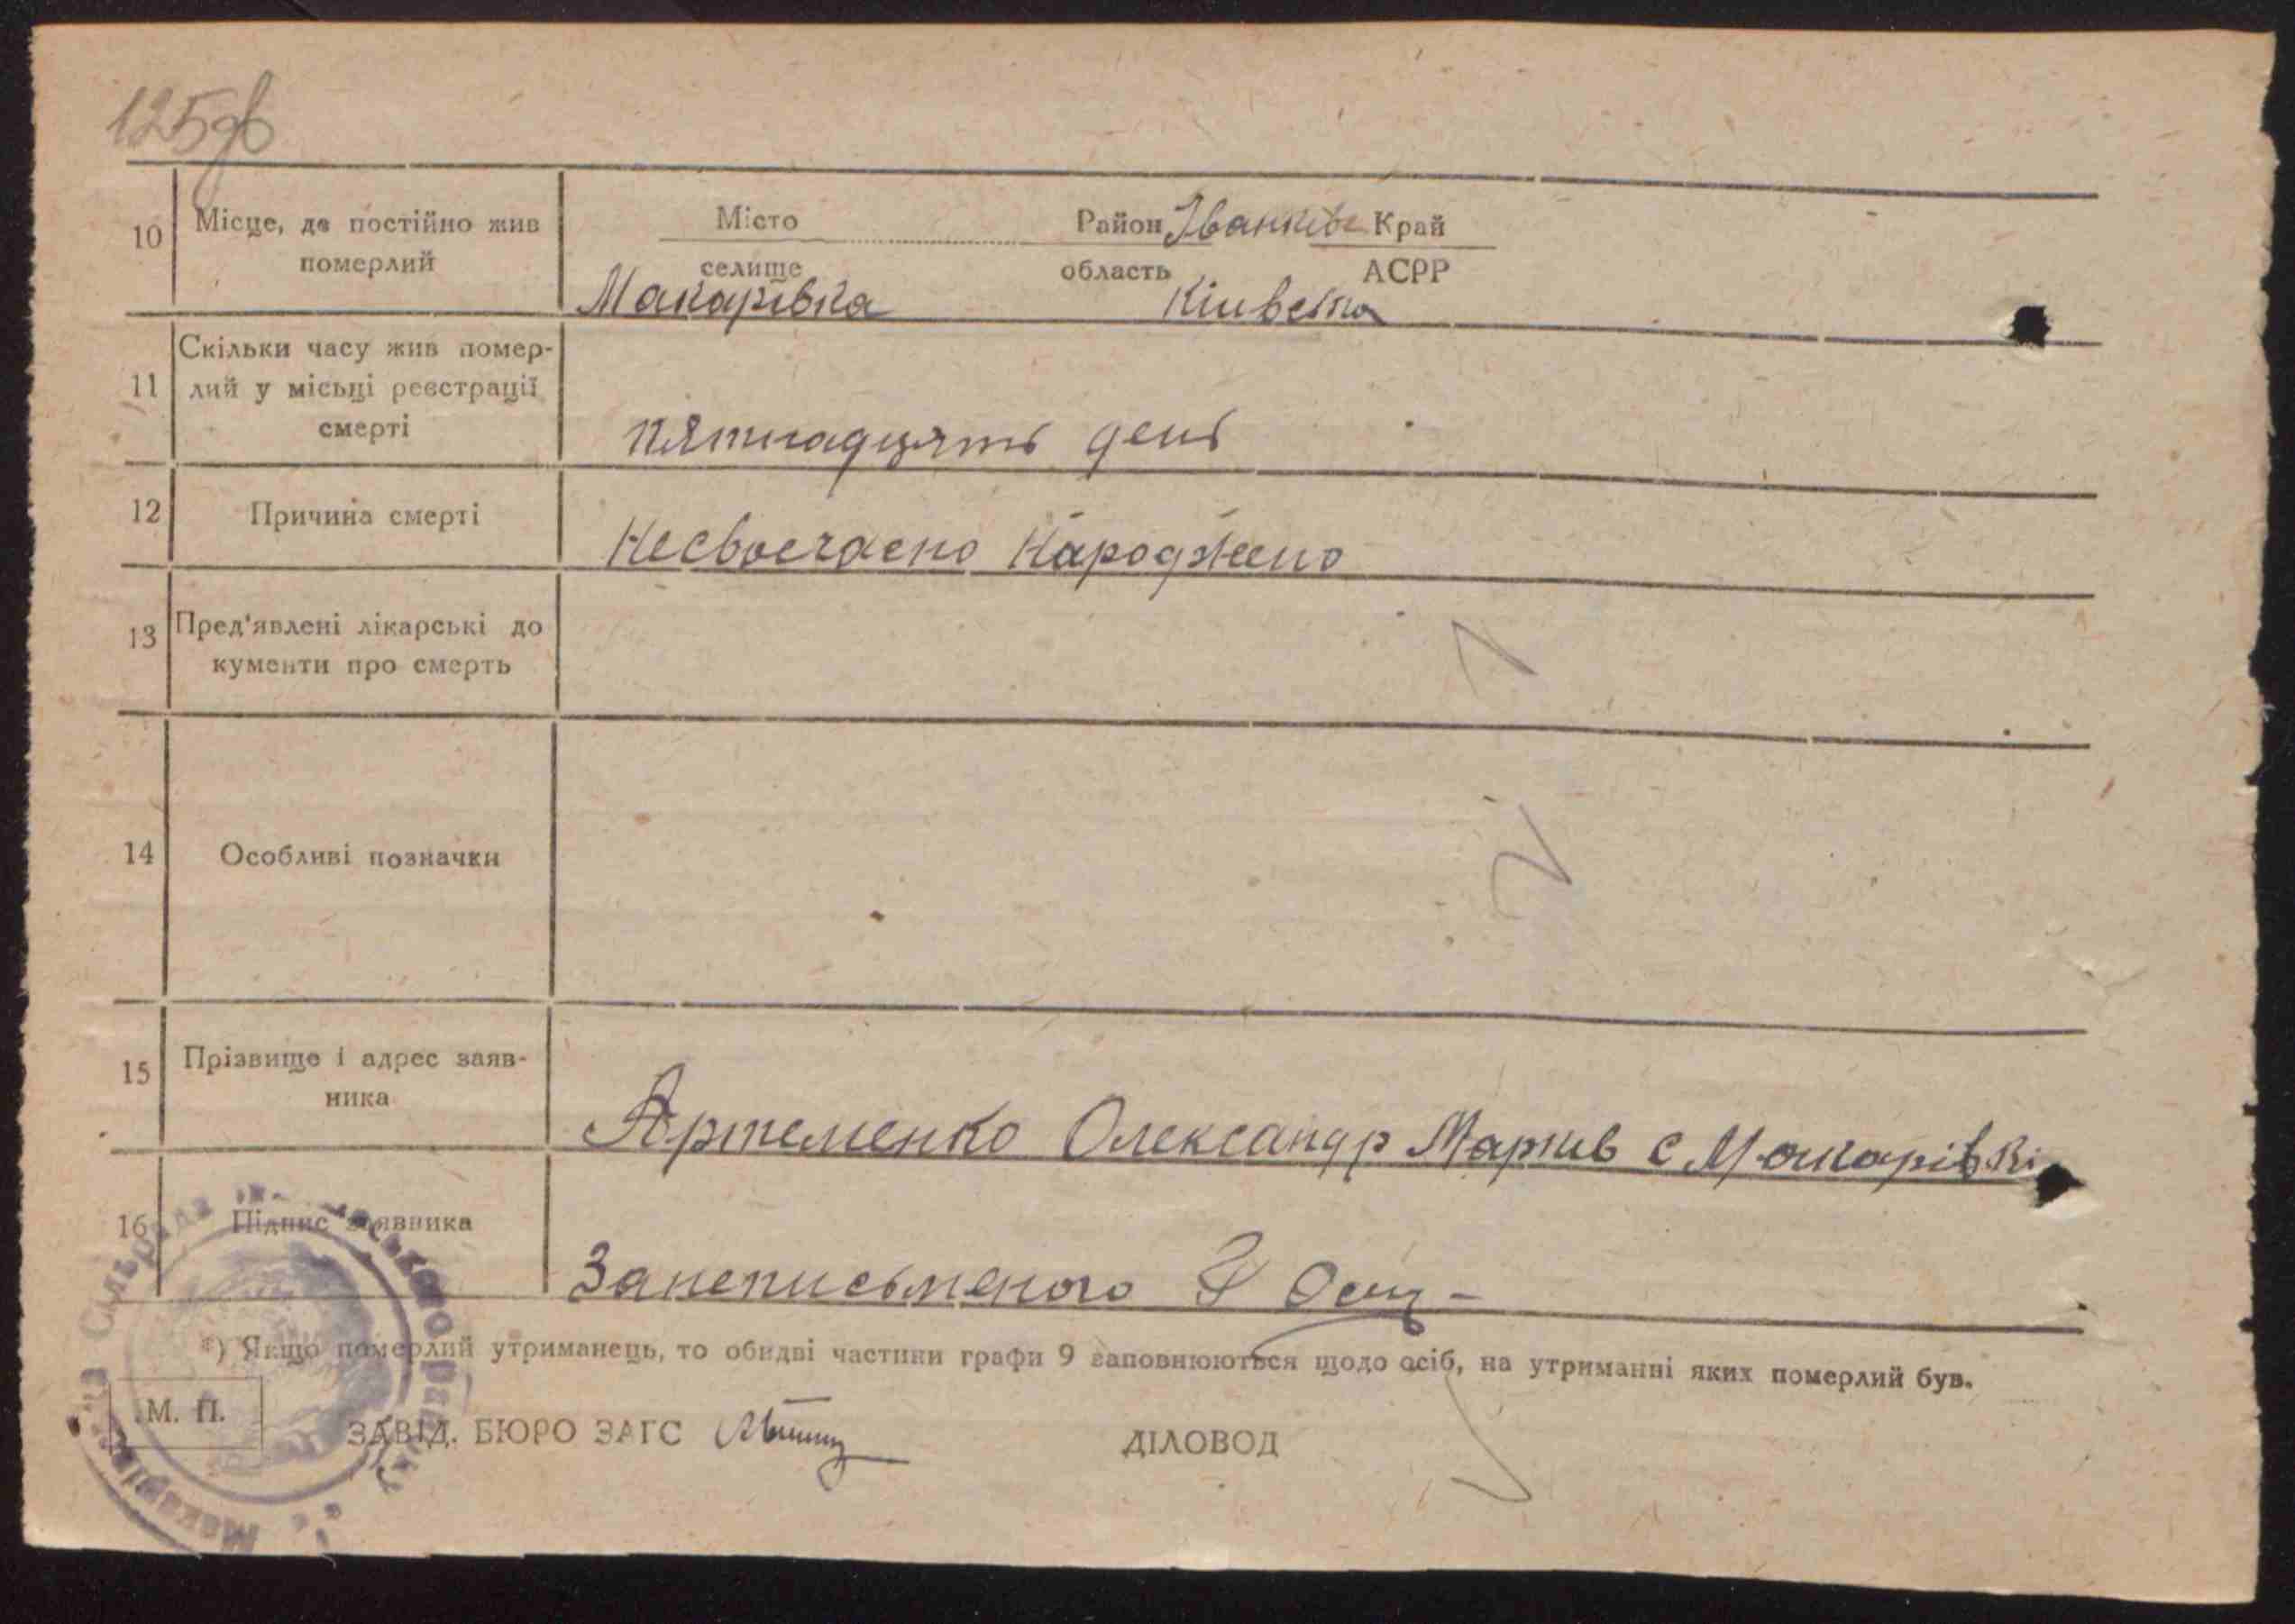 125зв
10 Місце, де постійно жив
померлий
Місто Район Іванків Край
селище область АСРР
Макарівка Київска
11 Скільки часу жив помер-
лий у місьці реєстрації
смерті
пятнадцять день
12 Причина смерті
Несвоечасно Народжено
13 Пред'явлені лікарські до
кументи про смерть
14 Особливі позначки
15 Прізвище і адрес заяв-
ника
Артеменко Олександр Марків с Макарівкі
16 Підпис заявника
Занеписьменого
*) Якщо померлий утриманець, то обидві частини графи 9 заповнюються щодо осіб, на утриманні яких померлий був.
М. П.
ЗАВІД. БЮРО ЗАГС ДІЛОВОД